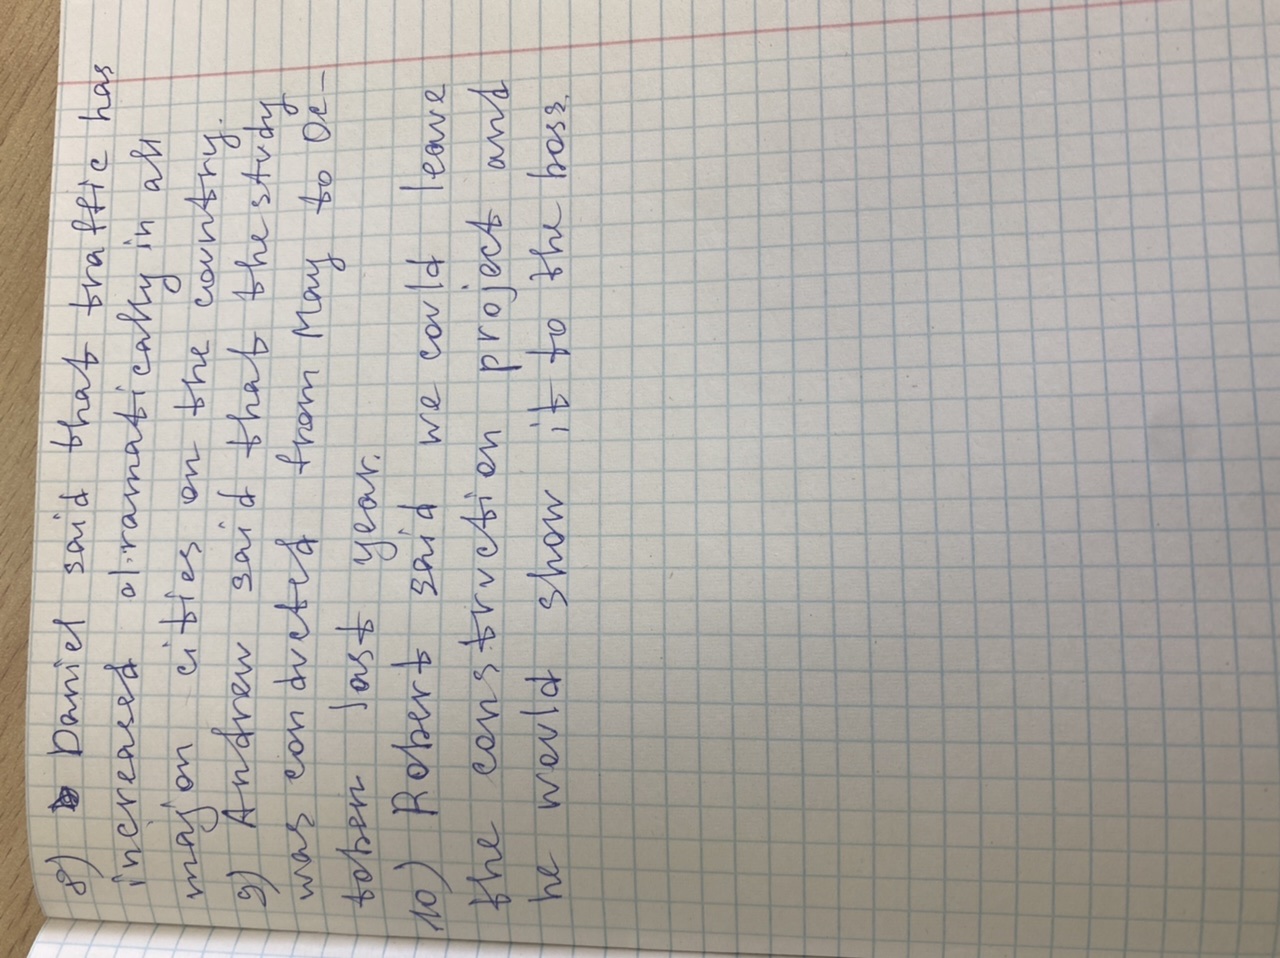 8) Daniel said that traffic has
increased dramatically in all
major cities on the country.
9) Andrew said that the study
was conducted from May to Oc-
tober last year.
10) Robert said we could leave
the construction project and
he would show it to the boss.